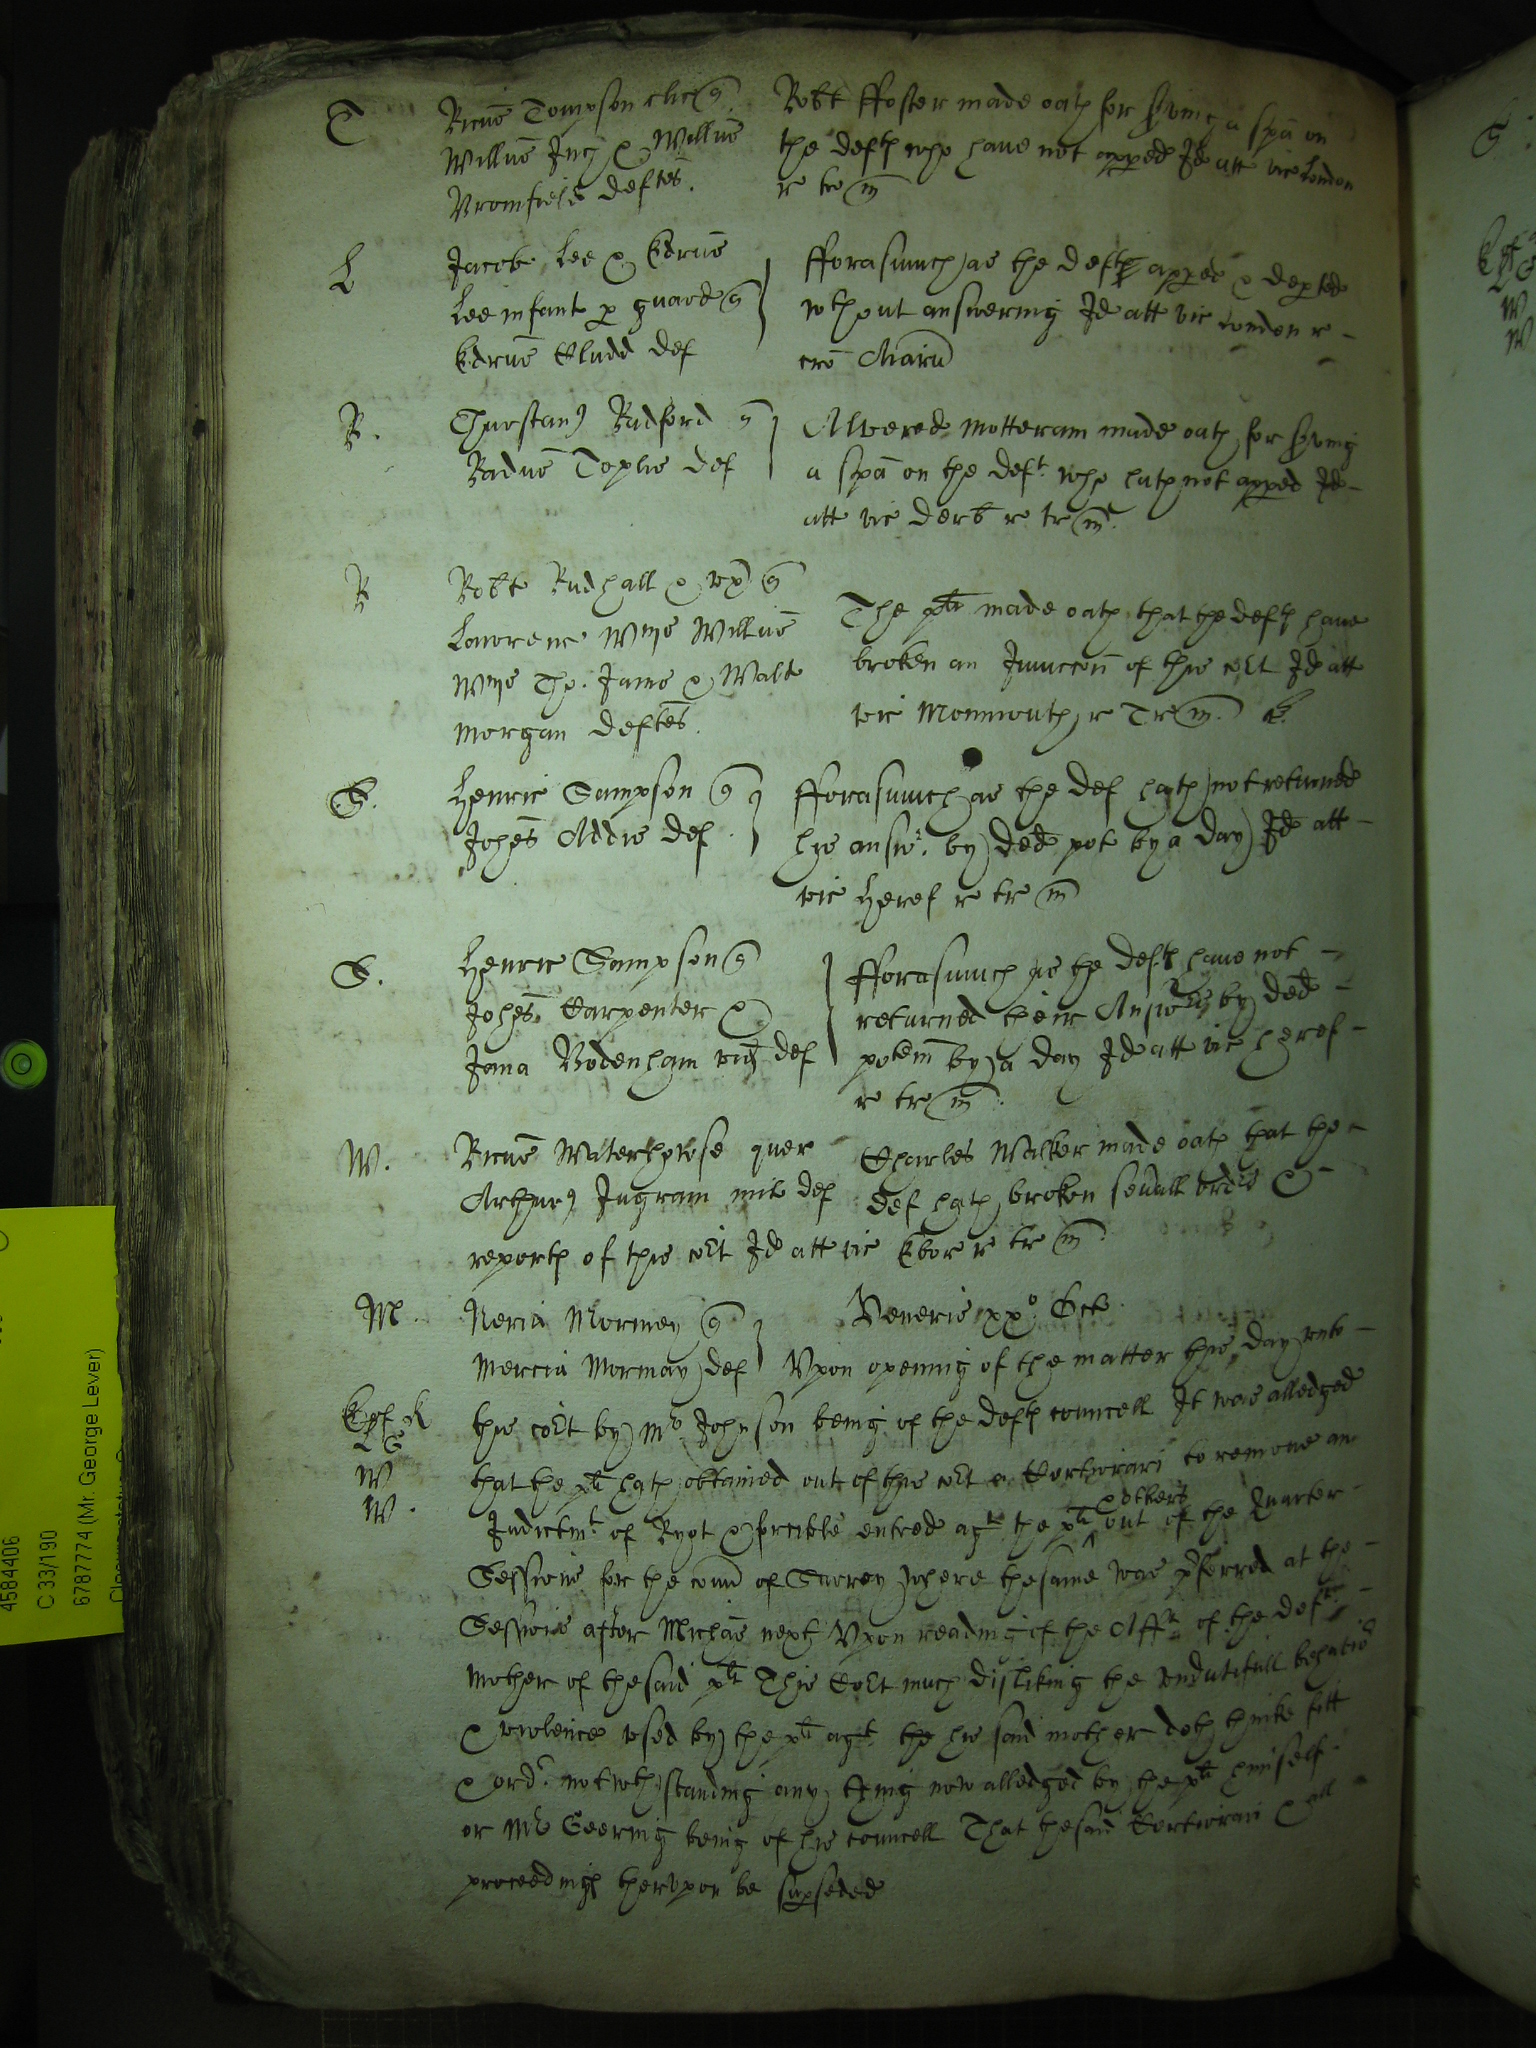 T Ricus Tompson clic q
Robt ffoster made oath for s̃ving a spa on
Willus Inch & Willus
the defts who have not apped Id att vic London
Bromfield deftes.
r tr m
L Jacob Lee & Edrus
Lee infant p guard q
Edrus Cludd def
fforasmuch as the defts apped & depted
wthout answering Id att vic London r
cro Animaru
R. Thurstanus Radford q
Radus Toplis def
Alvered Motteram made oath for s̃ving
a spa on the deft. who hath not apped Id
att vic Derb r tr m.
R Robte Rudhall & ux q
Lawrenc Wms Willus
Wms Tho. James & Walt
Morgan deftes.
The plt made oath that the defts have
broken an Iniuccon of this cort Id att
vic Monmouth r Tr m.
S. Henric Sampson q
Johes Addis def.
fforasmuch as the def hath not returned
his answr. by ded pot by a day Id att
vic Heref r tr m
S. Henric Sampson q
Johes Carpenter &
Jana Bodenham vid def
fforasmuch as the defts have not
returned their Answers by ded
potem by a day Id att vic heref
r tr m.
W. Ricus Waterhowse quer
Arthurus Ingram mil def
Charles Walker made oath that the
def hath broken seuall ordrs &
reports of this cort Id att vic Ebor r tr m
M. Neria Mormey q
Mercia Mormay def
Veneris xxo. Octo.
Vpon opening of the matter this day vnto
this cort by Mr Johnson being of the defts councell It was alledged
that the plt hath obtained out of this cort a Certiorari to remove an
& others
Indictmt. of Ryot & forcible entred agt the plt out of the Quarter
Sessions for the coun of Surrey where the same was pferred at the
Sessions after Michas next Vpon reading of the Afft of the deft
W
W.
Mother of the said plt This Cort much disliking the vndutifull behavior
& violence vsed by the plt agt. the his said mother doth thinke fitt
& ordr. notwthstanding any thing now alledged by the plt himself
or Mr Geering being of his councell That the said Certiorari & all
proceedings thervpon be supseded
4584406
C 33/190
6787774 (Mr. George Lever)